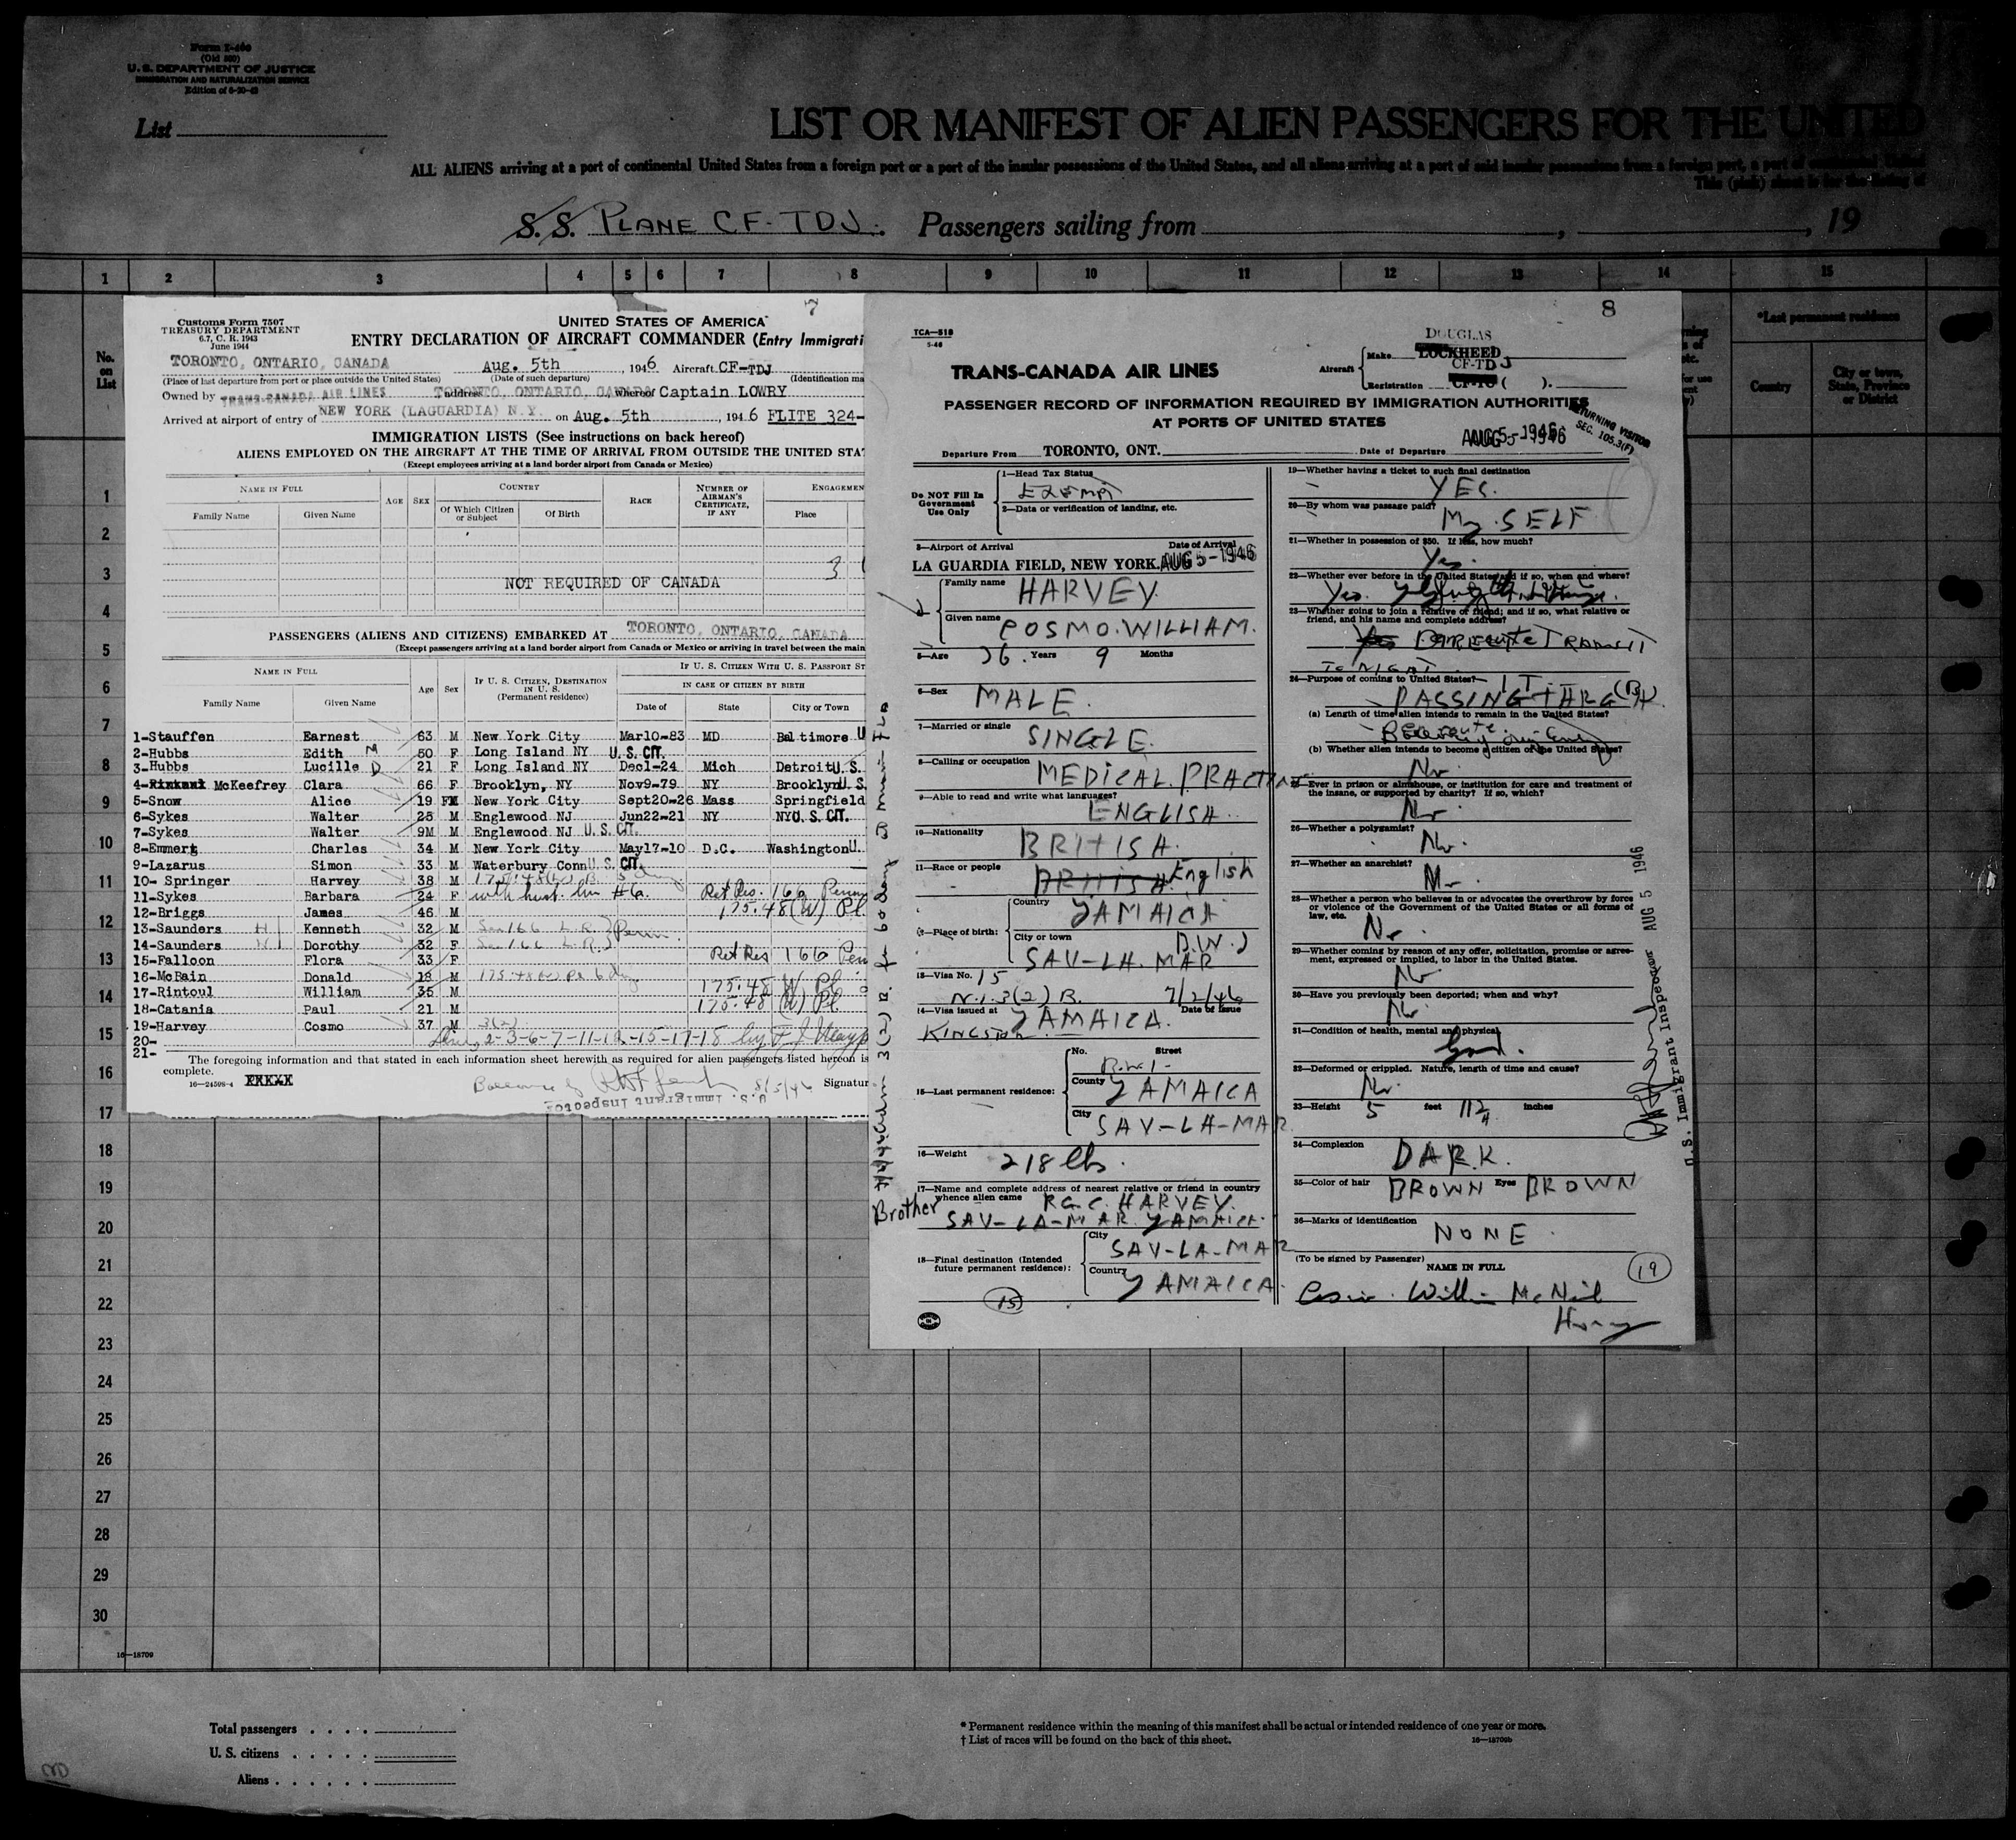 Form I-466
(Old 500)
U. S. DEPARTMENT OF JUSTICE
IMMIGRATION AND NATURALIZATION SERVICE
List
LIST OR MANIFEST OF ALIEN PASSENGERS FOR THE UNITED
ALL ALIENS arriving at a port of continental United States from a foreign port or a port of the insular possessions of the United States, and all aliens arriving at a port of said insular possessions from a foreign port, a port of continental United
This (pink) sheet is for the listing of
S. S. PLANE CF-TDJ. Passengers sailing from , , 19
1 2 3 4 5 6 7 8 9 10 11 12 13 14 15
No. on List
*Last permanent residence
Country
City or town, State, Province or District
7
Customs Form 7507
TREASURY DEPARTMENT
6.7, C. R. 1943
June 1944
UNITED STATES OF AMERICA
ENTRY DECLARATION OF AIRCRAFT COMMANDER (Entry Immigrati
TORONTO, ONTARIO, CANADA Aug. 5th , 1946 Aircraft CF-TDJ
(Place of last departure from port or place outside the United States) (Date of such departure) (Identification ma
Owned by TRANS-CANADA AIR LINES address TORONTO, ONTARIO, CANADA Whereof Captain LOWRY
Arrived at airport of entry of NEW YORK (LAGUARDIA) N.Y. on Aug. 5th , 1946 FLITE 324-
IMMIGRATION LISTS (See instructions on back hereof)
ALIENS EMPLOYED ON THE AIRCRAFT AT THE TIME OF ARRIVAL FROM OUTSIDE THE UNITED STA
(Except employees arriving at a land border airport from Canada or Mexico)
NAME IN FULL AGE SEX COUNTRY RACE NUMBER OF AIRMAN'S CERTIFICATE, IF ANY ENGAGEMEN
Family Name Given Name Of Which Citizen or Subject Of Birth Place
3
NOT REQUIRED OF CANADA
PASSENGERS (ALIENS AND CITIZENS) EMBARKED AT TORONTO, ONTARIO, CANADA
(Except passengers arriving at a land border airport from Canada or Mexico or arriving in travel between the main
NAME IN FULL Age Sex IF U. S. CITIZEN, DESTINATION IN U. S. (Permanent residence) IF U. S. CITIZEN WITH U. S. PASSPORT ST
IN CASE OF CITIZEN BY BIRTH
Family Name Given Name Date of State City or Town
1-Stauffen Earnest 63 M New York City Mar10-83 MD Baltimore U
2-Hubbs Edith M 50 F Long Island NY U. S. CIT.
3-Hubbs Lucille D 21 F Long Island NY Dec1-24 Mich Detroit U. S.
4- McKeefrey Clara 66 F Brooklyn, NY Nov9-79 NY Brooklyn U. S.
5-Snow Alice 19 F New York City Sept20-26 Mass Springfield
6-Sykes Walter 25 M Englewood NJ Jun22-21 NY NY U. S. CIT.
7-Sykes Walter 9M M Englewood NJ U. S. CIT.
8-Emmert Charles 34 M New York City May17-10 D.C. Washington U.
9-Lazarus Simon 33 M Waterbury Conn U. S. CIT.
10- Springer Harvey 38 M
11-Sykes Barbara 24 F with husb. lin #6. Ret Res. 166 Perm
12-Briggs James 46 M 175.48(W) Pl.
13-Saunders H Kenneth 32 M Sec 166 L.R. Perm.
14-Saunders W Dorothy 32 F Sec 166 L.R.
15-Falloon Flora 33 F Ret Res 166 Perm
16-McBain Donald 18 M
17-Rintoul William 35 M 175.48 (W) Pl
18-Catania Paul 21 M 175.48 (W) Pl
19-Harvey Cosmo 37 M 3(2)
20- 2-3-6-7-11-12-15-17-18 by
21-
The foregoing information and that stated in each information sheet herewith as required for alien passengers listed hereon is
complete.
16-24598-4 XXXXX 8/5/46 Signatur
U. S. Immigrant Inspector
8
TCA-518
5-46
TRANS-CANADA AIR LINES
Aircraft Make DOUGLAS LOCKHEED
CF-TDJ
Registration CF-TC ( ).
PASSENGER RECORD OF INFORMATION REQUIRED BY IMMIGRATION AUTHORITIES
AT PORTS OF UNITED STATES
RETURNING VISITOR
SEC. 105.3(F)
Departure From TORONTO, ONT. Date of Departure AUG 5-1946
Do NOT Fill In Government Use Only
1-Head Tax Status
Exempt
2-Data or verification of landing, etc.
3-Airport of Arrival Date of Arrival
LA GUARDIA FIELD, NEW YORK. AUG 5-1946
Family name
HARVEY.
Given name
COSMO. WILLIAM.
5-Age 36. Years 9 Months
6-Sex MALE.
7-Married or single
SINGLE.
8-Calling or occupation
MEDICAL. PRACTI
9-Able to read and write what languages?
ENGLISH.
10-Nationality
BRITISH.
11-Race or people
BRITISH. English
12-Place of birth:
Country JAMAICA
City or town B.W.I
SAV-LA. MAR
13-Visa No. 15
N.I. 3(2) B. 7/2/46
14-Visa issued at Date of Issue
KINGSTON JAMAICA.
15-Last permanent residence:
No. Street
B.W.I-
County JAMAICA
City SAV-LA-MAR.
16-Weight 218 lbs.
17-Name and complete address of nearest relative or friend in country
whence alien came R.G.C. HARVEY.
Brother SAV-LA-MAR. JAMAICA.
18-Final destination (Intended future permanent residence):
City SAV-LA-MAR
Country JAMAICA.
15
19-Whether having a ticket to such final destination
YES.
20-By whom was passage paid?
My. SELF
21-Whether in possession of $50. If less, how much?
Yes.
22-Whether ever before in the United States and if so, when and where?
Yes.
23-Whether going to join a relative or friend; and if so, what relative or
friend, and his name and complete address?
TRANSIT
24-Purpose of coming to United States?
PASSING
(a) Length of time alien intends to remain in the United States?
(b) Whether alien intends to become a citizen of the United States?
No.
25-Ever in prison or almshouse, or institution for care and treatment of
the insane, or supported by charity? If so, which?
No.
26-Whether a polygamist?
No.
27-Whether an anarchist?
No.
28-Whether a person who believes in or advocates the overthrow by force
or violence of the Government of the United States or all forms of
law, etc.
No.
29-Whether coming by reason of any offer, solicitation, promise or agree-
ment, expressed or implied, to labor in the United States.
No
30-Have you previously been deported; when and why?
No.
31-Condition of health, mental and physical
Good.
32-Deformed or crippled. Nature, length of time and cause?
No.
33-Height 5 feet 11½ inches
34-Complexion
DARK.
35-Color of hair BROWN Eyes BROWN
36-Marks of identification
NONE
(To be signed by Passenger)
NAME IN FULL
19
Cosmo. William McNeil
Harvey
AUG 5 1946
U. S. Immigrant Inspector
1
2
3
4
5
6
7
8
9
10
11
12
13
14
15
16
17
18
19
20
21
22
23
24
25
26
27
28
29
30
16-18709
Total passengers . . . .
U. S. citizens . . . . .
Aliens . . . . . .
* Permanent residence within the meaning of this manifest shall be actual or intended residence of one year or more.
† List of races will be found on the back of this sheet.
16-18709b